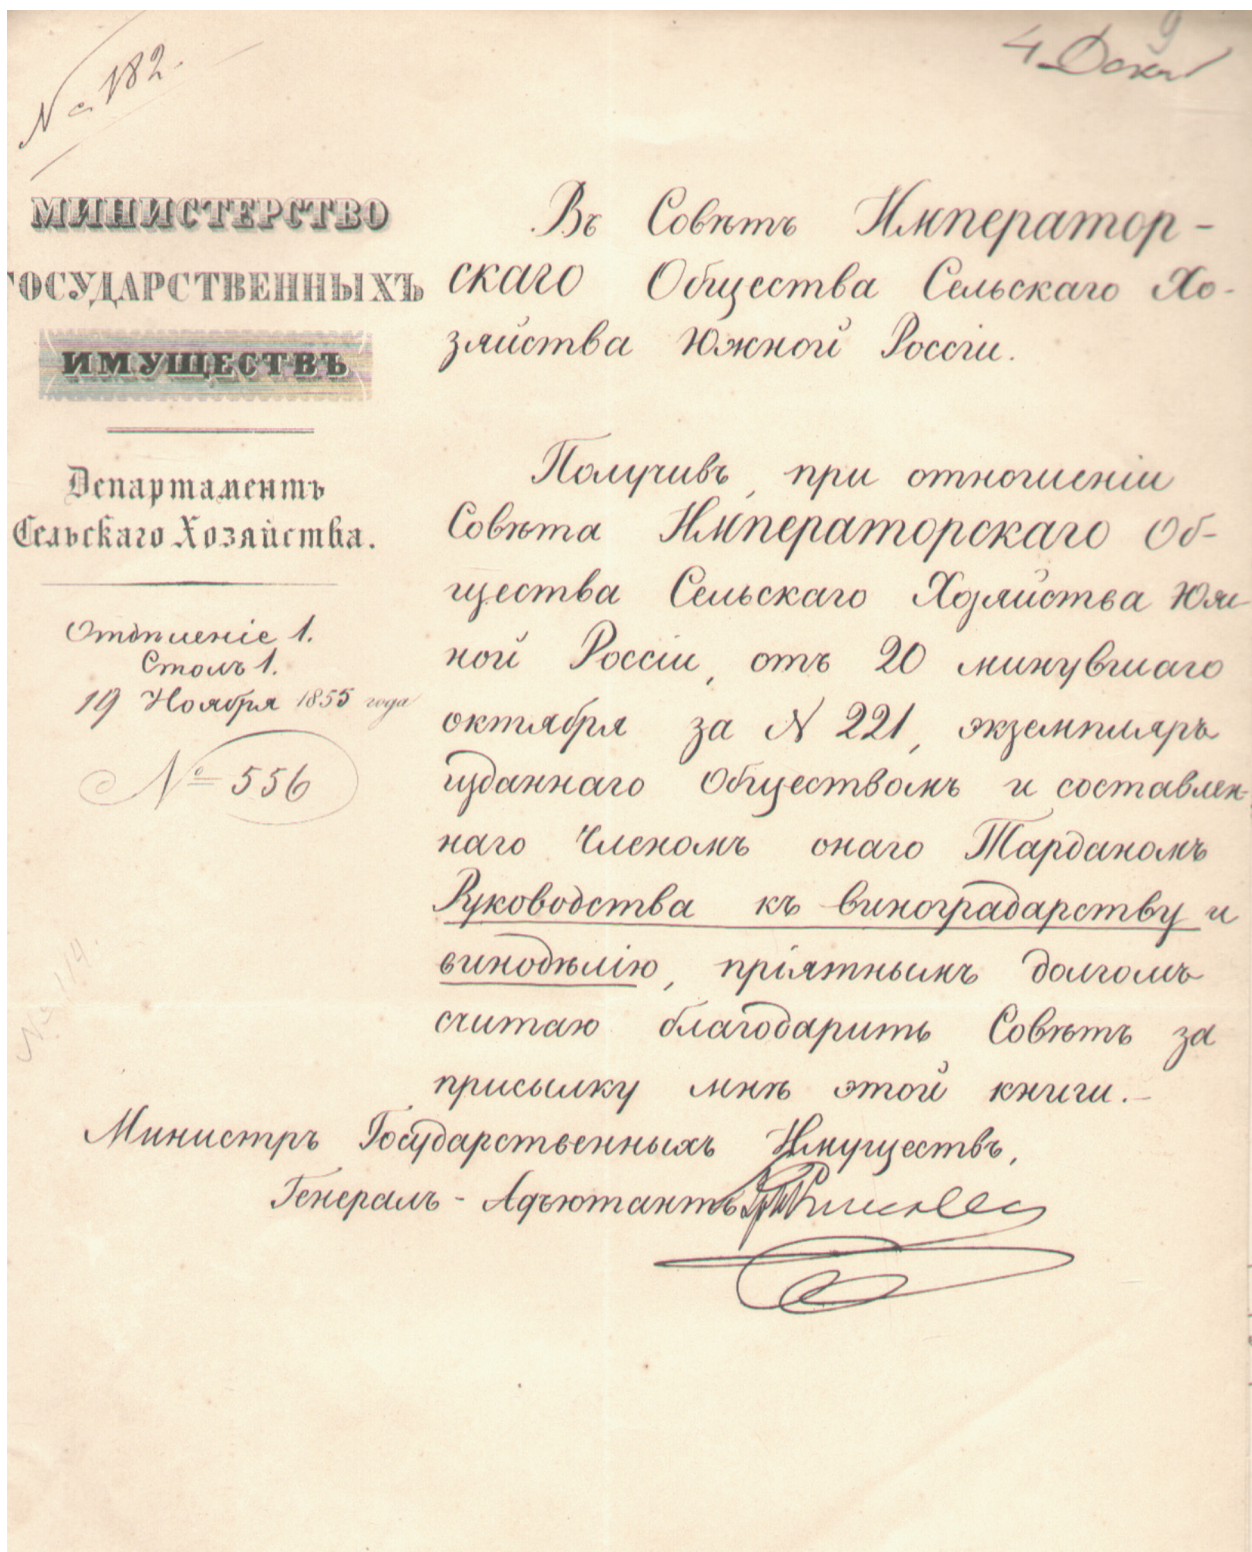 № 182.
4 Дек
9
МИНИСТЕРСТВО
ГОСУДАРСТВЕННЫХЪ
ИМУЩЕСТВЪ
Департаментъ
Сельскаго Хозяйства.
Отдѣленіе 1.
Столъ 1.
19 Ноября 1855 года
№ 556
Въ Совѣтъ Император-
скаго Общества Сельскаго Хо-
зяйства Южной Россіи.
Получивъ, при отношеніи
Совѣта Императорскаго Об-
щества Сельскаго Хозяйства Юж-
ной Россіи, отъ 20 минувшаго
октября за № 221, экземпляръ
изданнаго Обществомъ и составлен-
наго Членомъ онаго Тарданомъ
Руководства къ виноградарству и
винодѣлію, пріятнымъ долгомъ
считаю благодарить Совѣтъ за
присылку мнѣ этой книги.-
Министръ Государственныхъ Имуществъ,
Генералъ-Адъютантъ
№ 114.